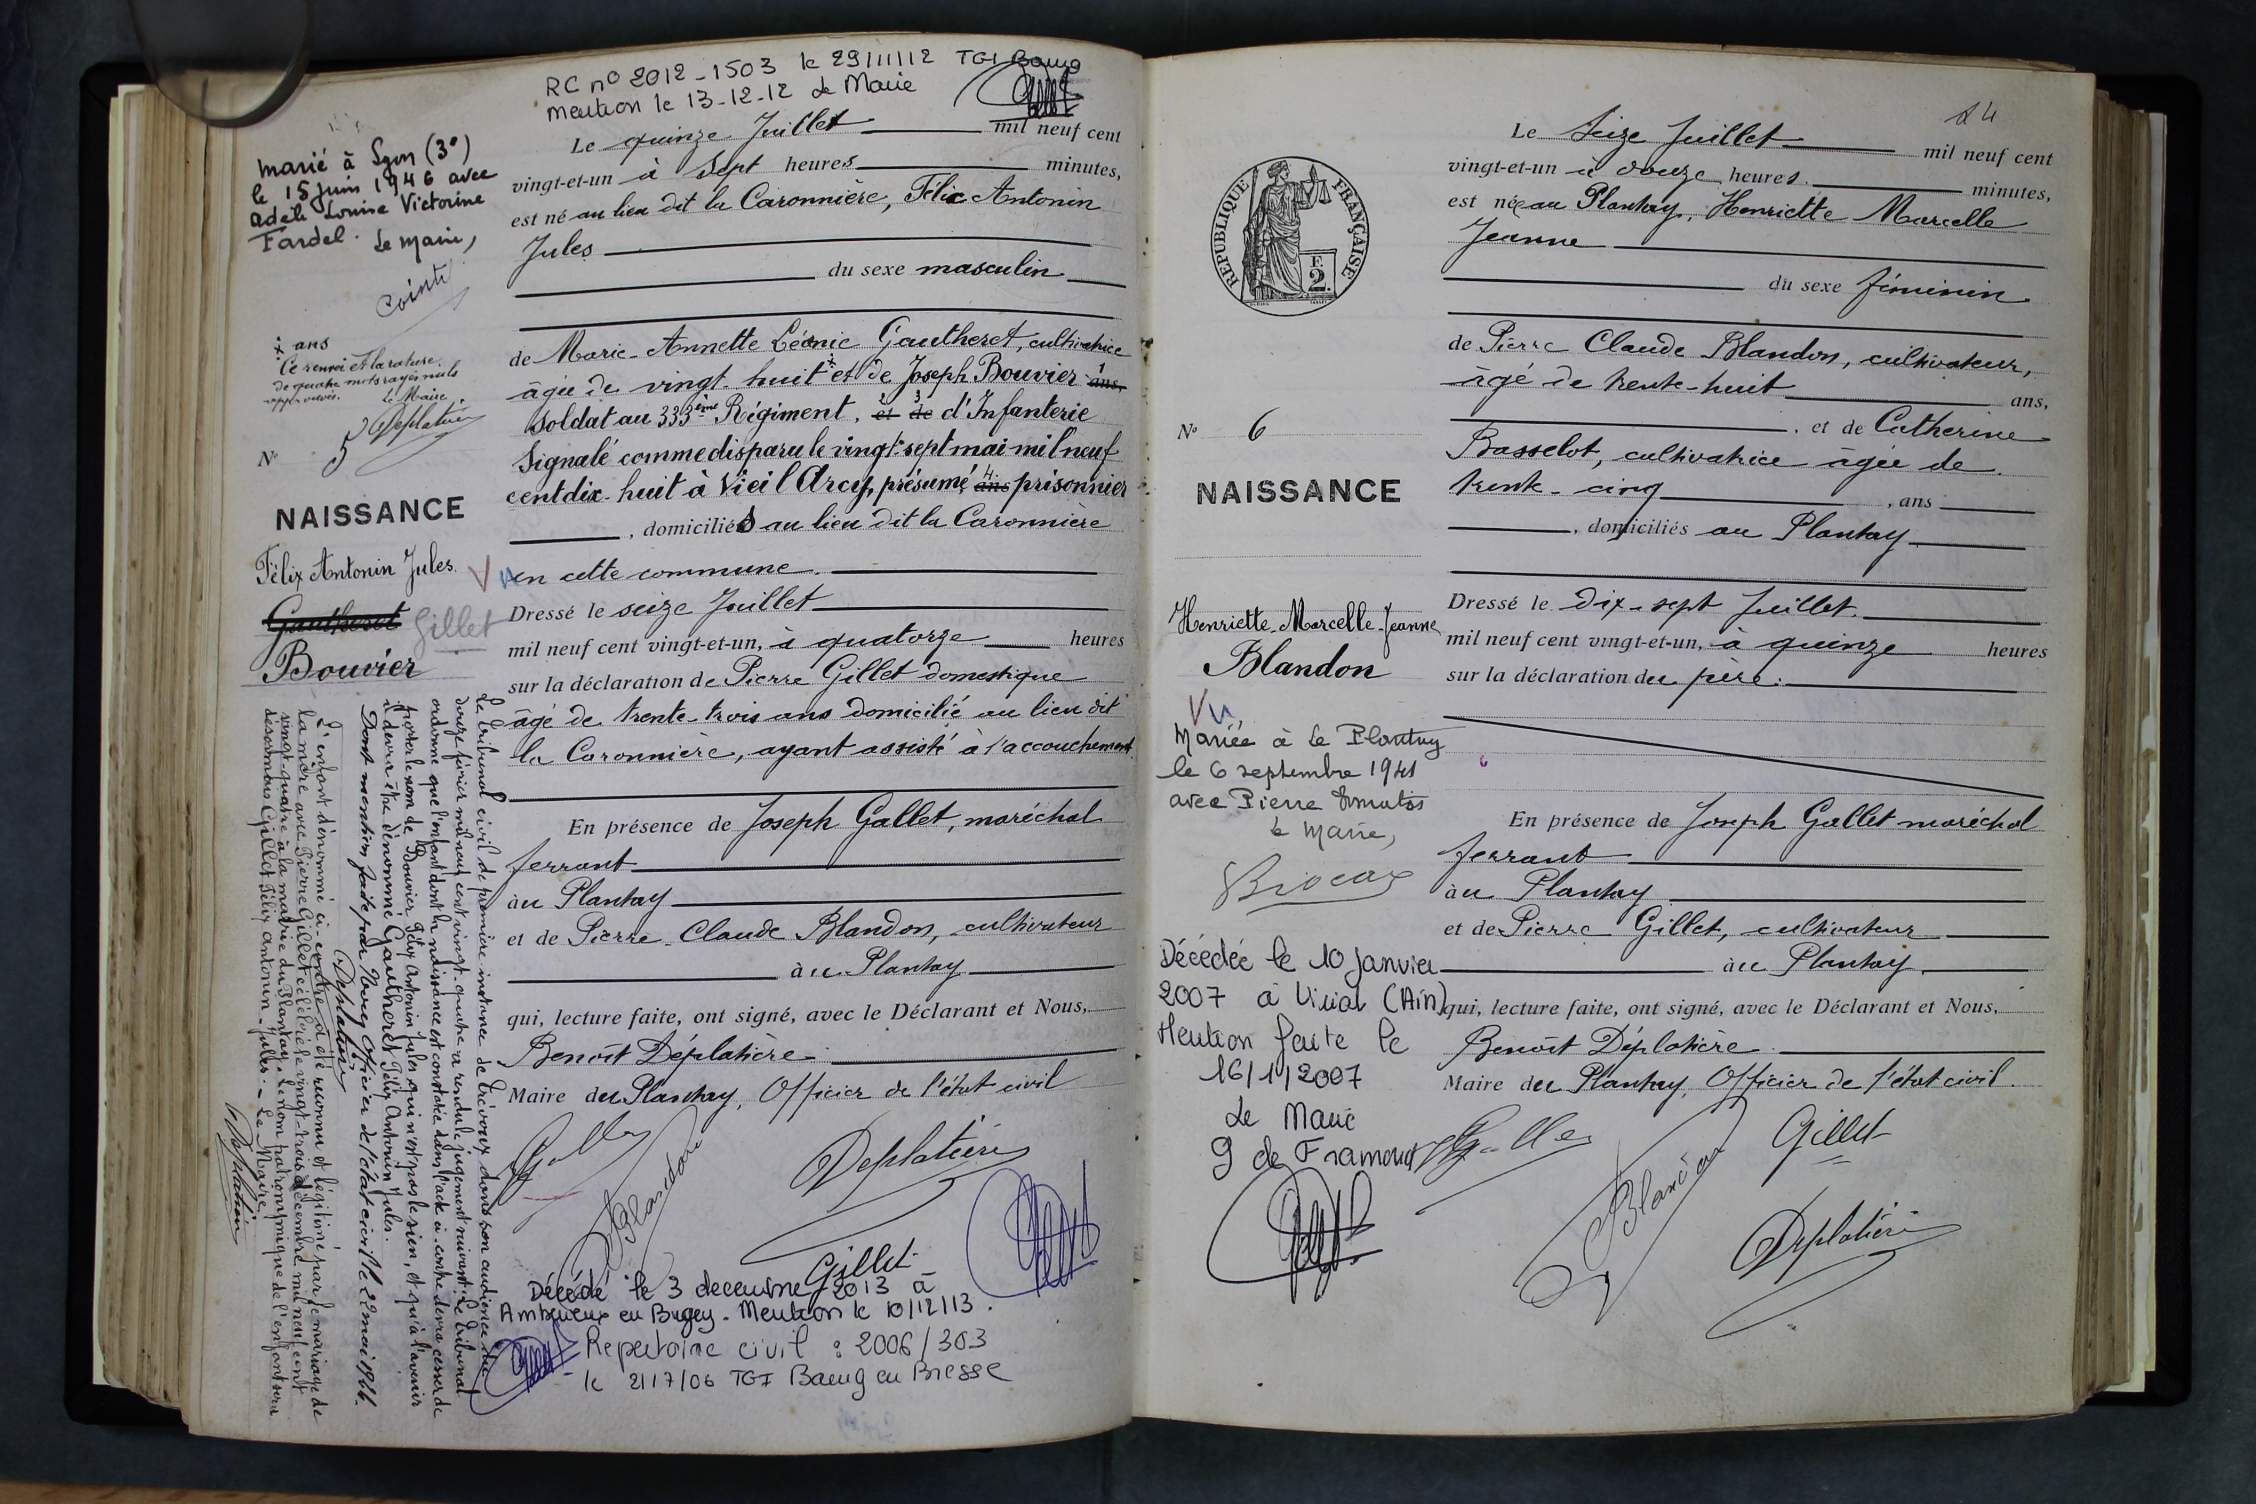 RC nº 2012-1503 le 29/11/12 TGI Bourg
mention le 13-12-12 Le Maire
marié à Lyon (3º)
le 15 juin 1946 avec
Adèle Louise Victorine
Fardel. Le Maire,
Cointe
x ans
Ce renvoi et la rature
de quatre mots rayés nuls
approuvés. Le Maire,
Deplatière
Nº 5
NAISSANCE
Félix Antonin Jules
Gautheret Gillet
Bouvier
Vu
Le quinze Juillet mil neuf cent
vingt-et-un à sept heures minutes,
est né au lieu dit la Caronnière, Félix Antonin
Jules
du sexe masculin
de Marie-Annette Léonie Gautheret, cultivatrice
âgée de vingt-huit x et de Joseph Bouvier 1 ans,
soldat au 333ème Régiment, 2 et 3 de d'Infanterie
Signalé comme disparu le vingt-sept mai mil neuf
cent dix-huit à Vieil Arcy, présumé 4 ans prisonnier
, domiciliés au lieu dit la Caronnière
en cette commune.
Dressé le seize Juillet
mil neuf cent vingt-et-un, à quatorze heures
sur la déclaration de Pierre Gillet domestique
âgé de trente-trois ans domicilié au lieu dit
la Caronnière, ayant assisté à l'accouchement
En présence de Joseph Gallet, maréchal
ferrant
àu Plantay
et de Pierre Claude Blandon, cultivateur
àu Plantay
qui, lecture faite, ont signé, avec le Déclarant et Nous,
Benoît Déplatière
Maire deu Plantay, Officier de l'état civil
Gallet
Blandon
Deplatière
Gillet
Décédé le 3 decembre 2013 à
Ambérieux en Bugey. Mention le 10/12/13.
Repertoire civil : 2006/303
le 21/7/06 TGI Bourg en Bresse
Le tribunal civil de première instance de Trévoux dans son audience du
douze février mil neuf cent vingt-quatre a rendu le jugement suivant: Le Tribunal
ordonne que l'enfant dont la naissance est constatée dans l'acte ci-contre devra cesser de
porter le nom de Bouvier Félix Antonin Jules qui n'est pas le sien, et qu'à l'avenir
il devra être dénommé Gautheret Félix Antonin Jules.
Dont mention faite par Nous officier de l'état civil le 22 mai 1924.
Deplatière
L'enfant dénommé ci-contre a été reconnu et légitimé par le mariage de
la mère avec Pierre Gillet célébré le vingt-trois décembre mil neuf cent
vingt-quatre à la mairie du Plantay. Le nom patronymique de l'enfant sera
désormais Gillet Félix Antonin Jules. Le Maire
Deplatière
24
REPUBLIQUE FRANÇAISE
F.
2.
Nº 6
NAISSANCE
Henriette-Marcelle-Jeanne
Blandon
Vu
Mariée à Le Plantay
le 6 septembre 1941
avec Pierre
Le Maire,
Décédée le 10 Janvier
2007 à Viriat (Ain)
Mention faite le
16/1/2007
Le Maire
G de Framond
Le Seize Juillet mil neuf cent
vingt-et-un à douze heures minutes,
est née au Plantay, Henriette Marcelle
Jeanne
du sexe féminin
de Pierre Claude Blandon, cultivateur,
âgé de trente-huit ans,
, et de Catherine
Basselot, cultivatrice âgée de
trente-cinq , ans
, domiciliés au Plantay
Dressé le dix-sept Juillet
mil neuf cent vingt-et-un, à quinze heures
sur la déclaration deu père.
En présence de Joseph Gallet maréchal
ferrant
àu Plantay
et de Pierre Gillet, cultivateur
àu Plantay
qui, lecture faite, ont signé, avec le Déclarant et Nous,
Benoît Déplatière
Maire deu Plantay, Officier de l'état civil.
Gallet
Gillet
Blandon
Deplatière